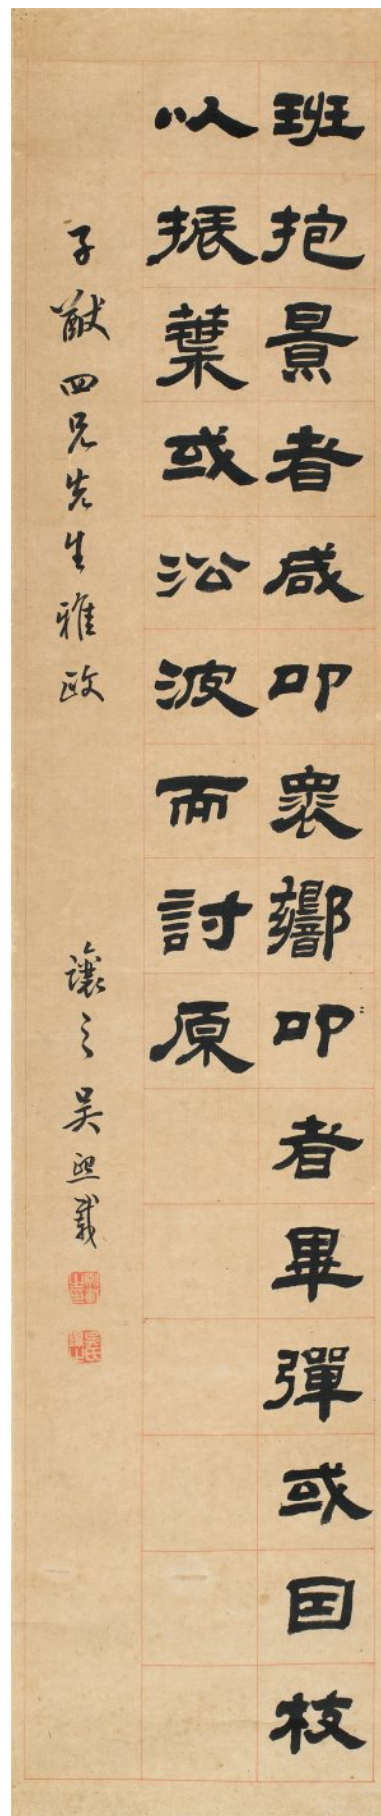 班抱景者咸叩衆嚮叩者畢彈或因枝
以振葉或沿波而討原
子猷四兄先生雅政
讓之吳熙載